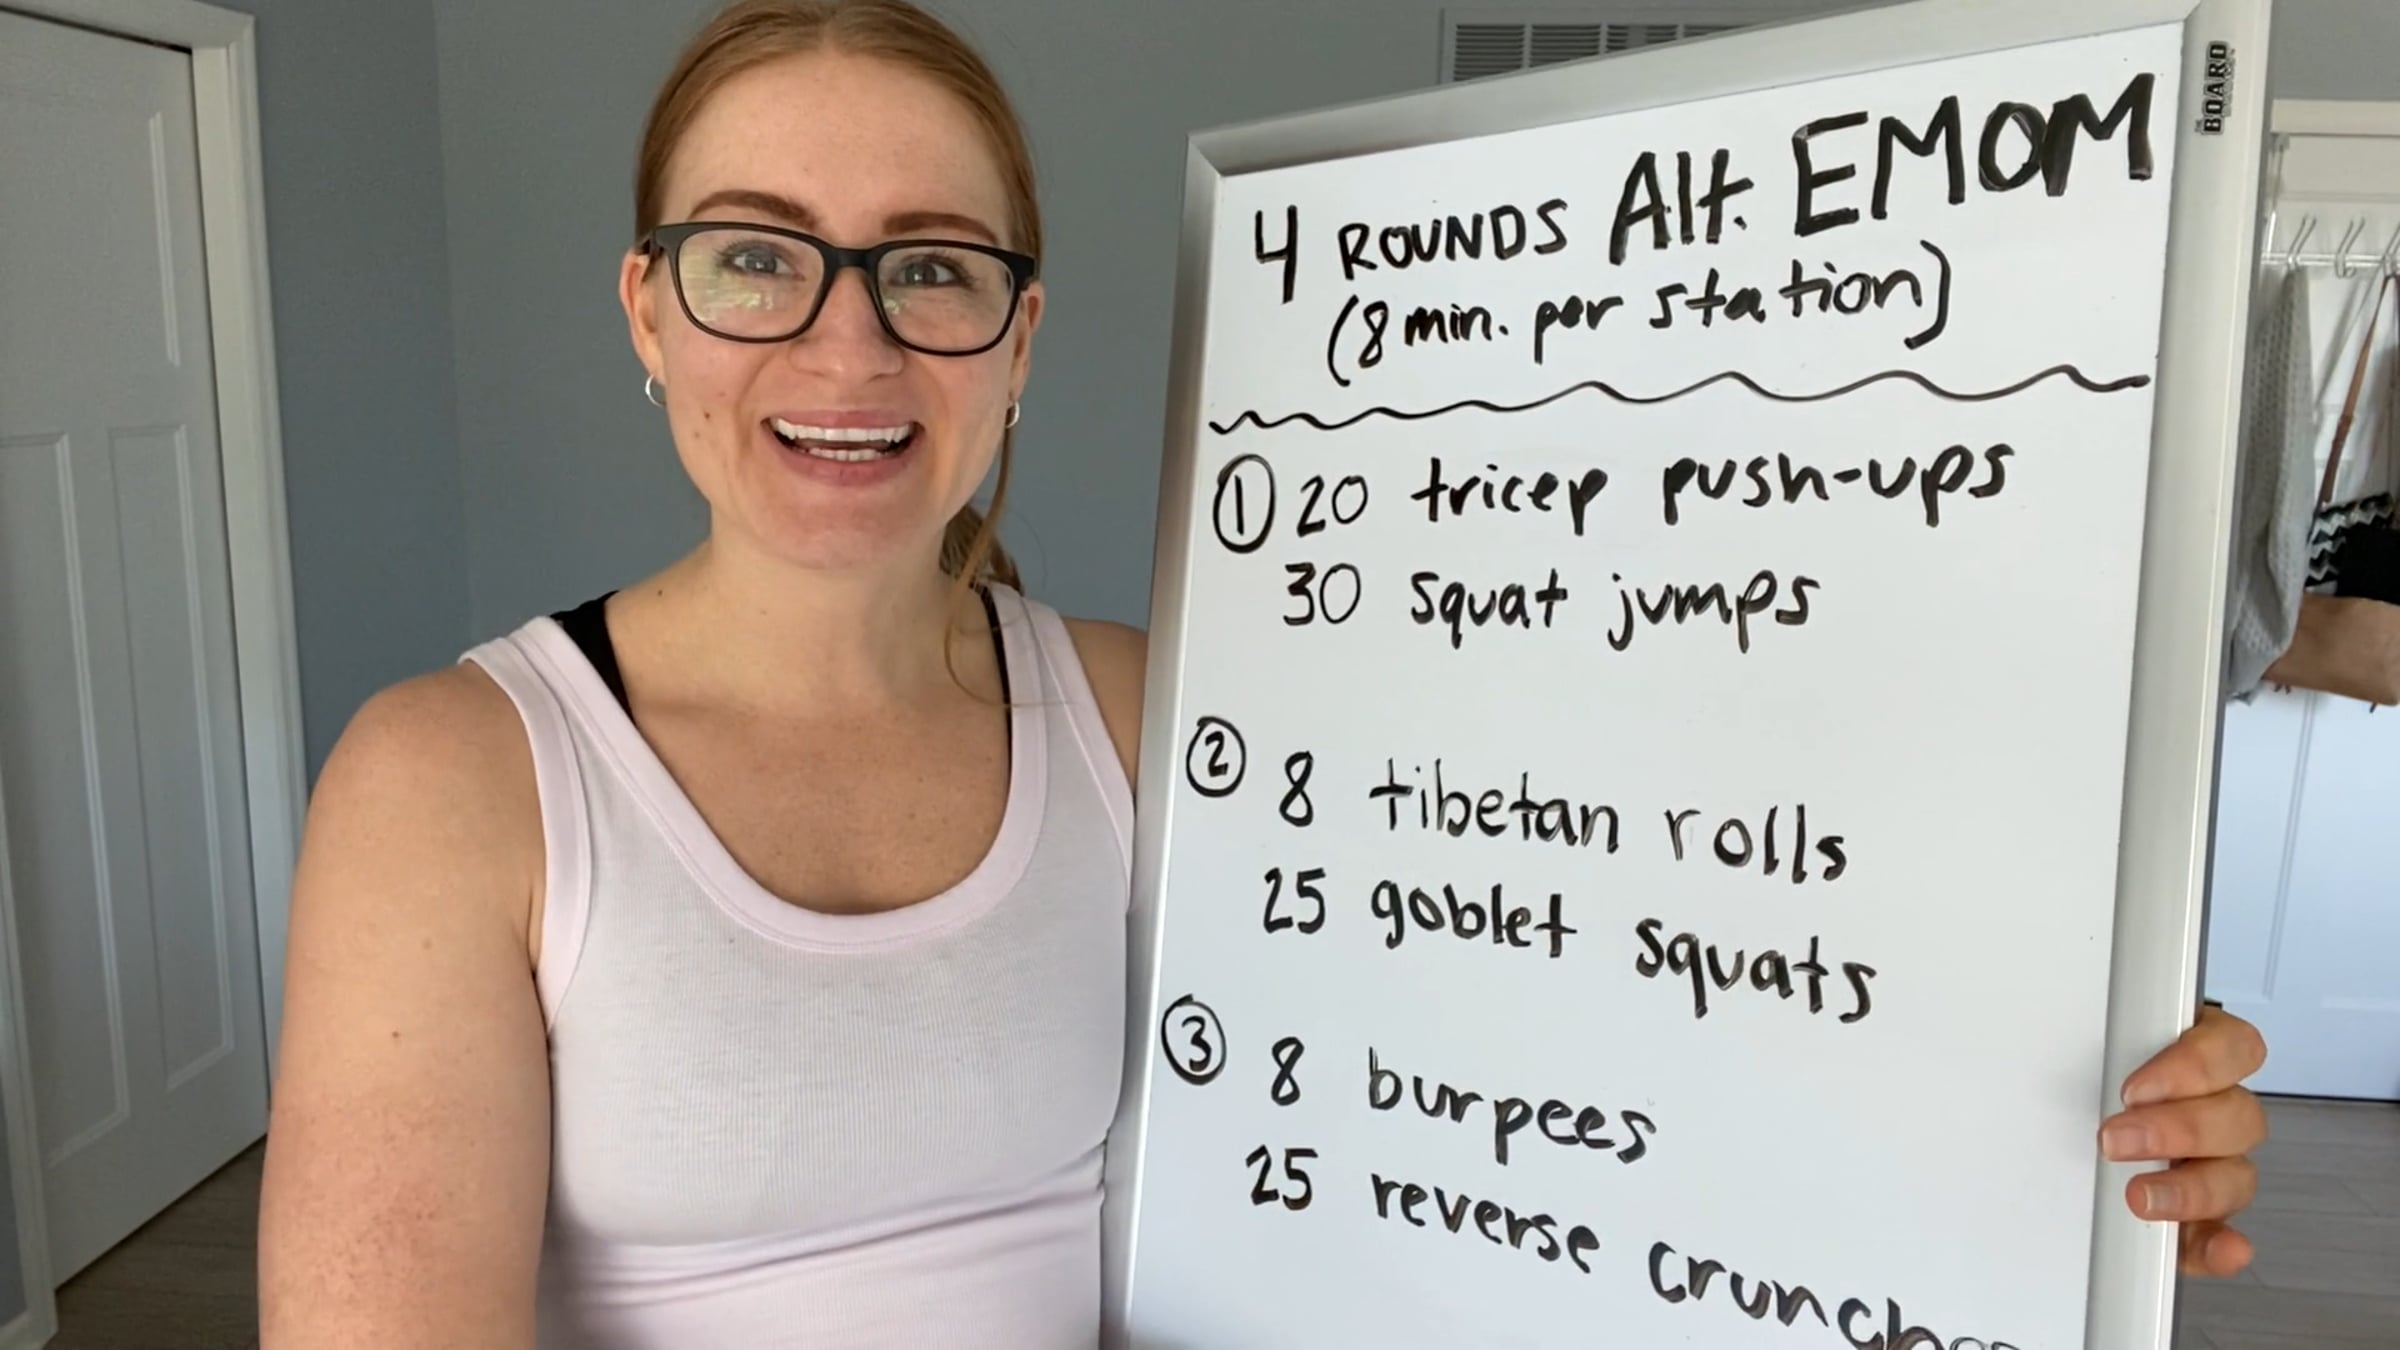 4 ROUNDS Alt. EMOM
(8 min. per station)
① 20 tricep push-ups
30 squat jumps
② 8 tibetan rolls
25 goblet squats
③ 8 burpees
25 reverse crunches
BOARD